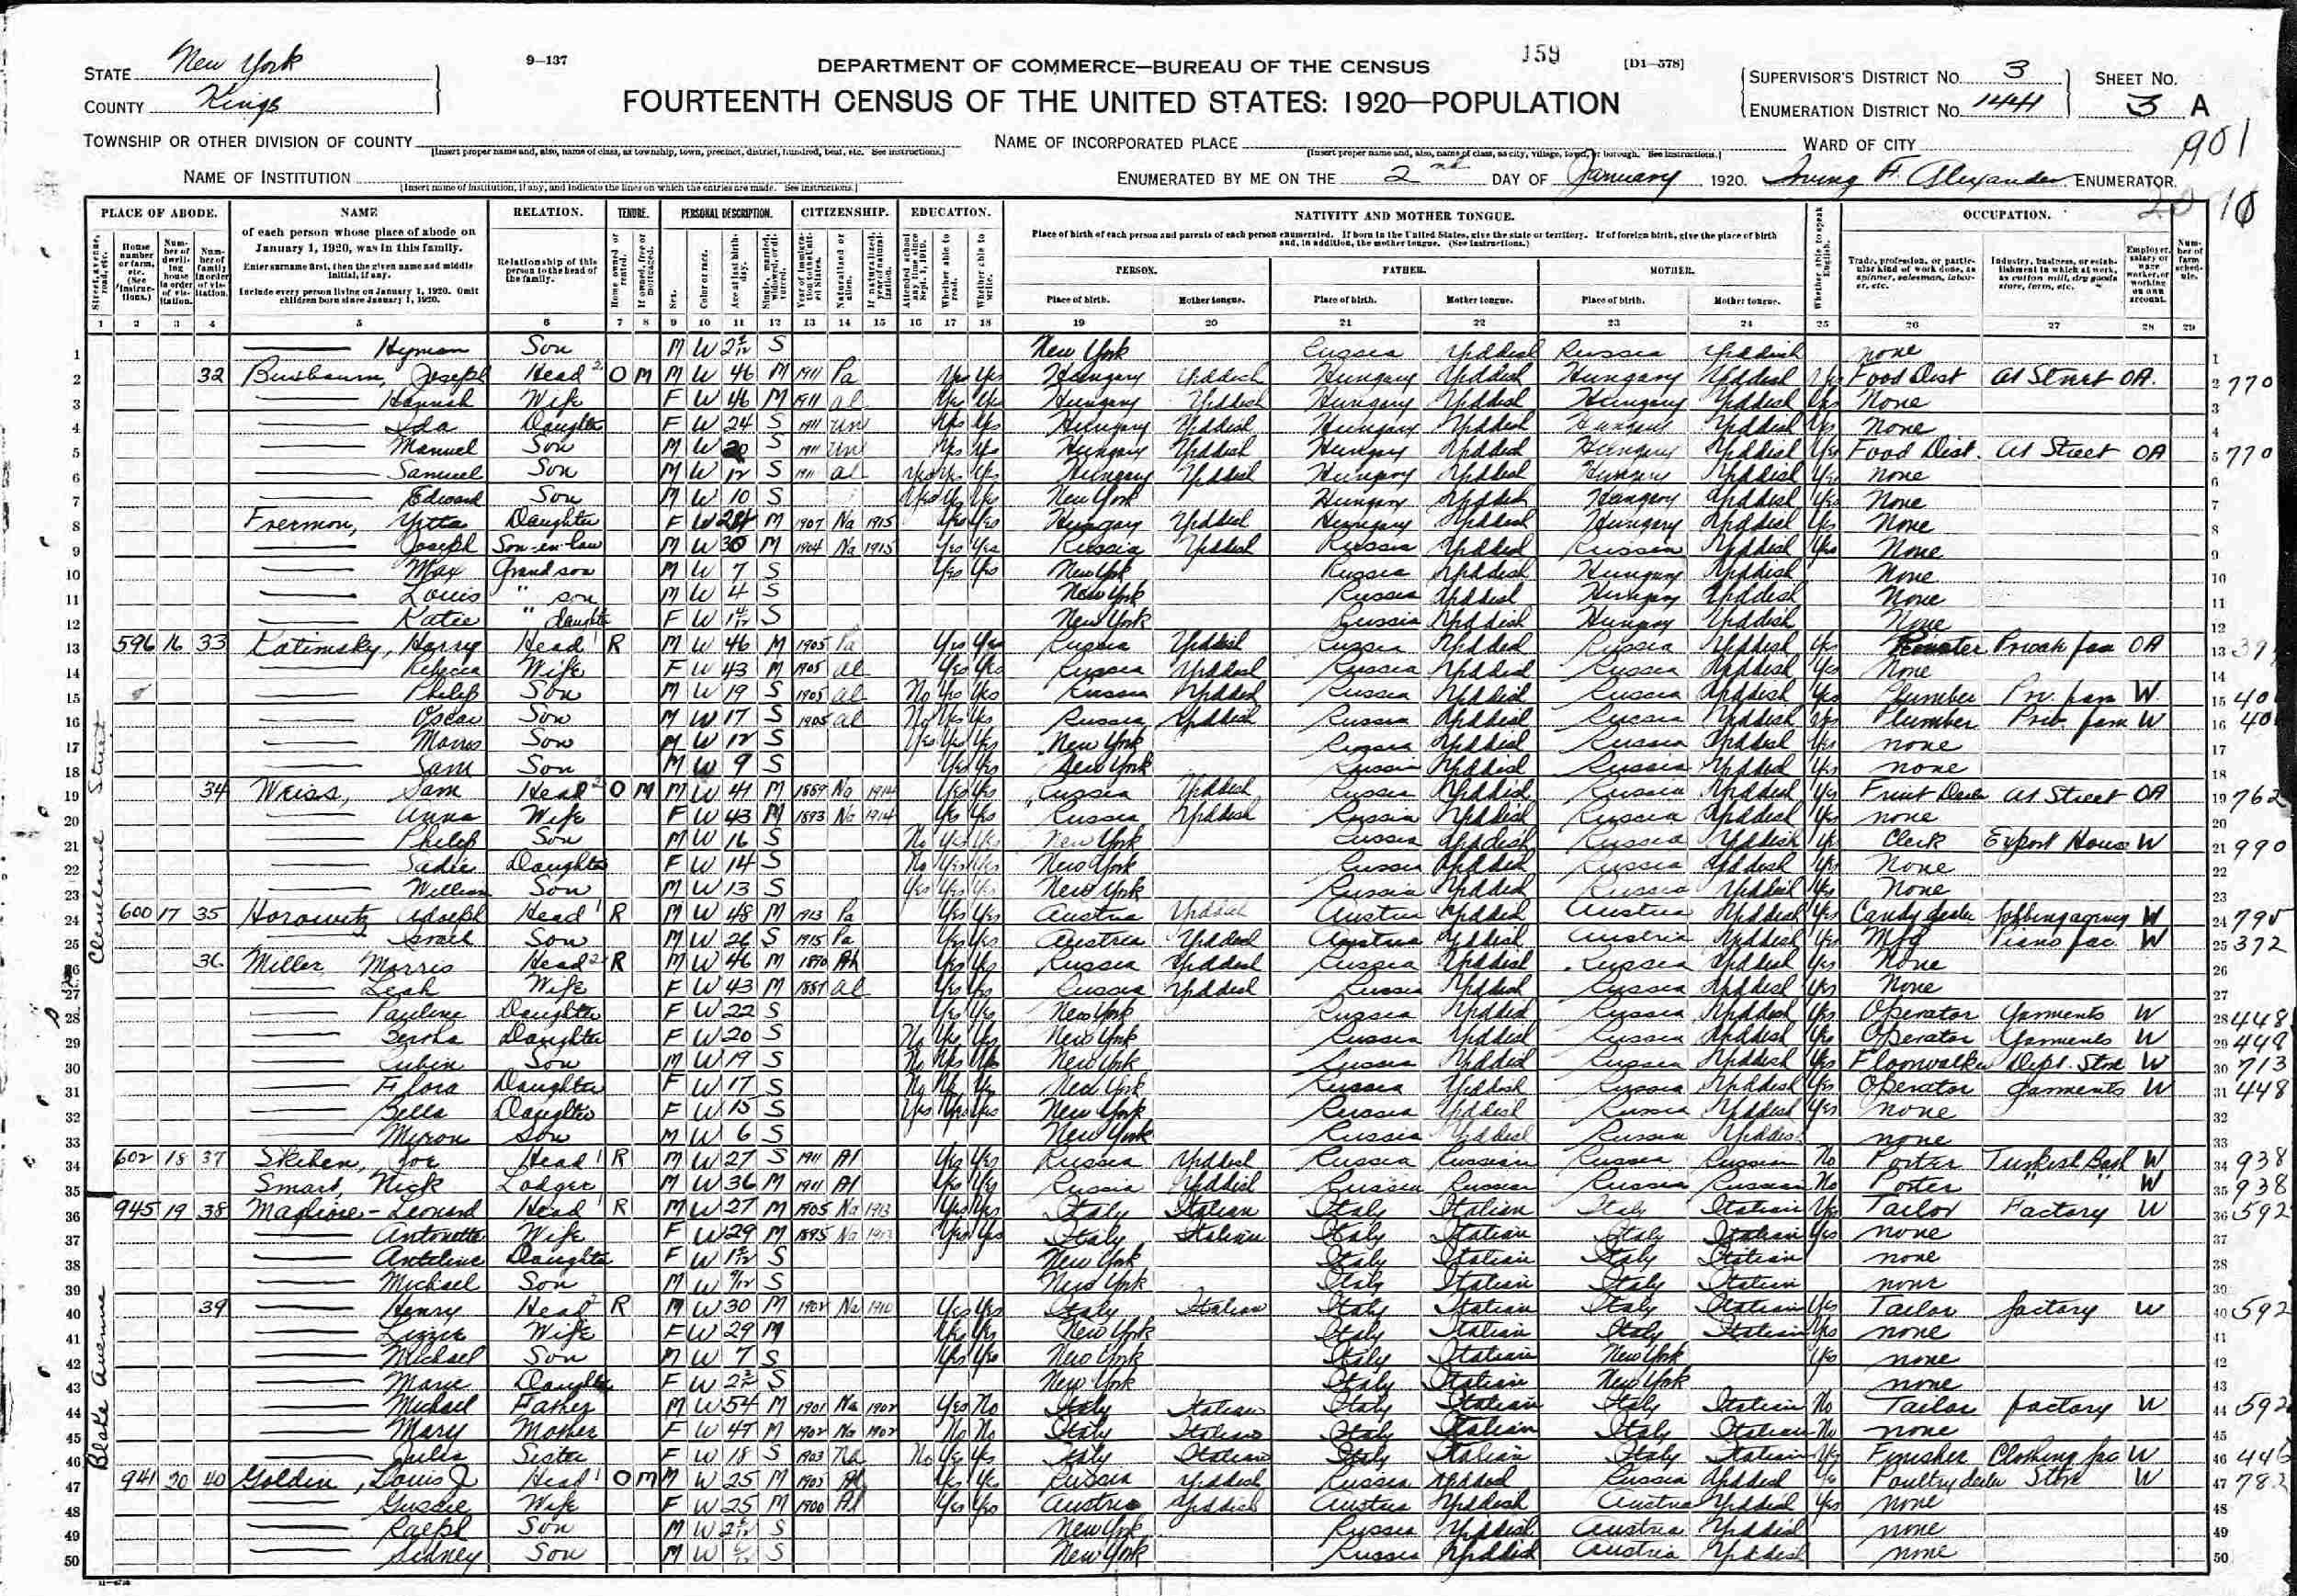 9—137
DEPARTMENT OF COMMERCE—BUREAU OF THE CENSUS
159
[D1—578]
STATE New York
COUNTY Kings
FOURTEENTH CENSUS OF THE UNITED STATES: 1920—POPULATION
SUPERVISOR'S DISTRICT No. 3
ENUMERATION DISTRICT No. 1441
SHEET No.
3 A
TOWNSHIP OR OTHER DIVISION OF COUNTY
[Insert proper name and, also, name of class, as township, town, precinct, district, hundred, beat, etc. See instructions.]
NAME OF INCORPORATED PLACE
[Insert proper name and, also, name of class, as city, village, town, or borough. See instructions.]
WARD OF CITY
901
NAME OF INSTITUTION
[Insert name of institution, if any, and indicate the lines on which the entries are made. See instructions.]
ENUMERATED BY ME ON THE 2nd DAY OF January, 1920. Irving F. Alexander, ENUMERATOR.
PLACE OF ABODE.
NAME
of each person whose place of abode on January 1, 1920, was in this family.
Enter surname first, then the given name and middle initial, if any.
Include every person living on January 1, 1920. Omit children born since January 1, 1920.
RELATION.
Relationship of this person to the head of the family.
TENURE.
PERSONAL DESCRIPTION.
CITIZENSHIP.
EDUCATION.
NATIVITY AND MOTHER TONGUE.
Place of birth of each person and parents of each person enumerated. If born in the United States, give the state or territory. If of foreign birth, give the place of birth and, in addition, the mother tongue. (See instructions.)
PERSON. FATHER. MOTHER.
Place of birth. Mother tongue. Place of birth. Mother tongue. Place of birth. Mother tongue.
Whether able to speak English.
OCCUPATION.
1 2 3 4 5 6 7 8 9 10 11 12 13 14 15 16 17 18 19 20 21 22 23 24 25 26 27 28 29
Cleveland Street
Blake Avenue
1 Hyman Son M W S New York Russia Yiddish Russia Yiddish none
2 32 Joseph Head O M M W 46 M 1911 Pa Yes Yes Hungary Yiddish Hungary Yiddish Hungary Yiddish Yes Food Dist At Street OA 770
3 Hannah Wife F W 46 M 1911 al Yes Yes Hungary Yiddish Hungary Yiddish Hungary Yiddish Yes None
4 Ida Daughter F W 24 S 1911 un Yes Yes Hungary Yiddish Hungary Yiddish Hungary Yiddish Yes None
5 Manuel Son M W 20 S 1911 un Yes Yes Hungary Yiddish Hungary Yiddish Hungary Yiddish Yes Food Dist. At Street OA 770
6 Samuel Son M W 12 S 1911 al Yes Yes Yes Hungary Yiddish Hungary Yiddish Hungary Yiddish Yes none
7 Edward Son M W 10 S Yes Yes Yes New York Hungary Yiddish Hungary Yiddish Yes None
8 Yetta Daughter F W M 1907 Na 1915 Yes Yes Hungary Yiddish Hungary Yiddish Hungary Yiddish Yes None
9 Joseph Son-in-law M W 30 M 1904 Na 1915 Yes Yes Russia Yiddish Russia Yiddish Russia Yiddish Yes None
10 Max Grand son M W 7 S Yes Yes New York Russia Yiddish Hungary Yiddish None
11 Louis " son M W 4 S New York Russia Yiddish Hungary Yiddish None
12 Katie " daughter F W S New York Russia Yiddish Hungary Yiddish None
13 596 16 33 Harry Head R M W 46 M 1905 Pa Yes Yes Russia Yiddish Russia Yiddish Russia Yiddish Yes OA
14 Rebecca Wife F W 43 M 1905 al Yes Yes Russia Yiddish Russia Yiddish Russia Yiddish Yes None
15 Philip Son M W 19 S 1905 al No Yes Yes Russia Yiddish Russia Yiddish Russia Yiddish Yes Plumber Pri. fam W
16 Oscar Son M W 17 S 1905 al No Yes Yes Russia Yiddish Russia Yiddish Russia Yiddish Yes Plumber Priv. fam W
17 Morris Son M W 12 S Yes Yes Yes New York Russia Yiddish Russia Yiddish Yes none
18 Sam Son M W 9 S Yes Yes New York Russia Yiddish Russia Yiddish Yes none
19 34 Weiss, Sam Head O M M W 41 M 1889 Na 1914 Yes Yes Russia Yiddish Russia Yiddish Russia Yiddish Yes Fruit Dealer At Street OA 762
20 Anna Wife F W 43 M 1893 Na 1914 Yes Yes Russia Yiddish Russia Yiddish Russia Yiddish Yes none
21 Philip Son M W 16 S No Yes Yes New York Russia Yiddish Russia Yiddish Yes Clerk Export House W 990
22 Sadie Daughter F W 14 S No Yes Yes New York Russia Yiddish Russia Yiddish Yes None
23 William Son M W 13 S Yes Yes Yes New York Russia Yiddish Russia Yiddish Yes None
24 600 17 35 Horowitz Adolph Head R M W 48 M 1913 Pa Yes Yes Austria Yiddish Austria Yiddish Austria Yiddish Yes Candy dealer W 795
25 Israel Son M W 26 S 1915 Pa Yes Yes Austria Yiddish Austria Yiddish Austria Yiddish Yes Mfg Piano fac W 372
26 36 Miller Morris Head R M W 46 M 1890 Yes Yes Russia Yiddish Russia Yiddish Russia Yiddish Yes None
27 Leah Wife F W 43 M al Yes Yes Russia Yiddish Russia Yiddish Russia Yiddish Yes None
28 Pauline Daughter F W 22 S Yes Yes New York Russia Yiddish Russia Yiddish Yes Operator Garments W 448
29 Bertha Daughter F W 20 S No Yes Yes New York Russia Yiddish Russia Yiddish Yes Operator Garments W 448
30 Rubin Son M W 19 S No Yes Yes New York Russia Yiddish Russia Yiddish Yes Floorwalker Dept. Store W 713
31 Flora Daughter F W 17 S No Yes Yes New York Russia Yiddish Russia Yiddish Yes Operator Garments W 448
32 Bella Daughter F W 15 S Yes Yes Yes New York Russia Yiddish Russia Yiddish Yes none
33 Myron Son M W 6 S New York Russia Yiddish Russia Yiddish none
34 602 18 37 Joe Head R M W 27 S 1911 Al Yes Yes Russia Yiddish Russia Russian Russia Russian No Porter Turkish Bath W 938
35 Smart, Nick Lodger M W 36 M 1911 Al Yes Yes Russia Yiddish Russia Russian Russia Russian No Porter " " W 938
36 945 19 38 Maglione - Leonard Head R M W 27 M 1905 Na 1913 Yes Yes Italy Italian Italy Italian Italy Italian Yes Tailor Factory W 592
37 Antonette Wife F W 29 M 1895 Na 1913 Yes Yes Italy Italian Italy Italian Italy Italian Yes none
38 Daughter F W S New York Italy Italian Italy Italian none
39 Michael Son M W S New York Italy Italian Italy Italian none
40 39 Henry Head R M W 30 M 1902 Na 1910 Yes Yes Italy Italian Italy Italian Italy Italian Yes Tailor factory W 592
41 Lizzie Wife F W 29 M Yes Yes New York Italy Italian Italy Italian Yes none
42 Michael Son M W 7 S Yes Yes New York Italy Italian New York Yes none
43 Marie Daughter F W S New York Italy Italian New York none
44 Michael Father M W 54 M 1901 Na 1902 Yes No Italy Italian Italy Italian Italy Italian No Tailor factory W 592
45 Mary Mother F W 47 M 1902 Na 1902 No No Italy Italian Italy Italian Italy Italian No none
46 Julia Sister F W 18 S 1903 Na No Yes Yes Italy Italian Italy Italian Italy Italian Yes Finisher Clothing fac W 446
47 941 20 40 Golden, Louis J Head O M M W 25 M Yes Yes Russia Yiddish Russia Yiddish Russia Yiddish Yes Poultry dealer Store W 782
48 Gussie Wife F W 25 M 1900 Al Yes Yes Austria Yiddish Austria Yiddish Austria Yiddish Yes none
49 Ralph Son M W S New York Russia Yiddish Austria Yiddish none
50 Sidney Son M W S New York Russia Yiddish Austria Yiddish none